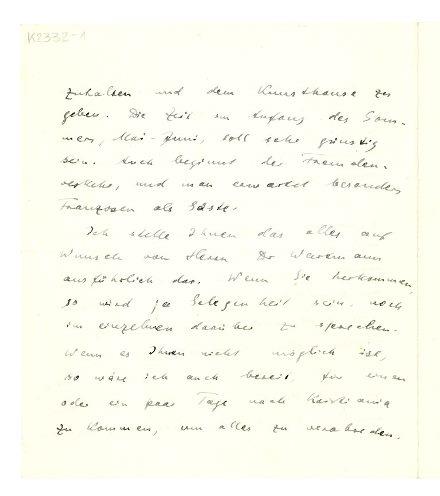 K2332-1
zuhalsen und dem Kunsthause zu
geben. Die Zeit im Anfang des Som-
mers, Mai-Juni, soll sehr günstig
sein. Auch beginnt der Fremden-
verkehr, und man erwartet besonders
Franzosen als Gäste.
Ich stelle Ihnen das alles auf
Wunsch von Herrn Dr Wartmann
ausführlich dar. Wenn Sie herkommen,
so wird ja Gelegenheit sein noch
im einzelnen darüber zu sprechen.
Wenn es Ihnen nicht möglich ist,
so wäre ich auch bereit für einen
oder ein paar Tage nach Kristiania
zu kommen, um alles zu verabreden.